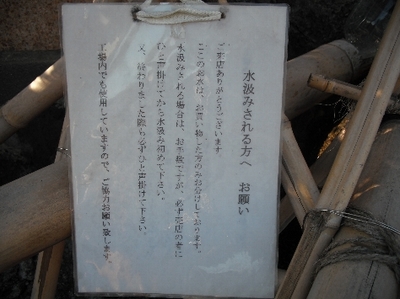 水汲みされる方へ　お願い
ご来店ありがとうございます
ここの銘水は、お買い物した方のみお分けしております。
水汲みされる場合は、お手数ですが、必ず売店の者に
ひと声掛けてから水汲み初めて下さい。
又、終わりました際も必ずひと声掛けて下さい。
工場内でも使用していますので、ご協力お願い致します。